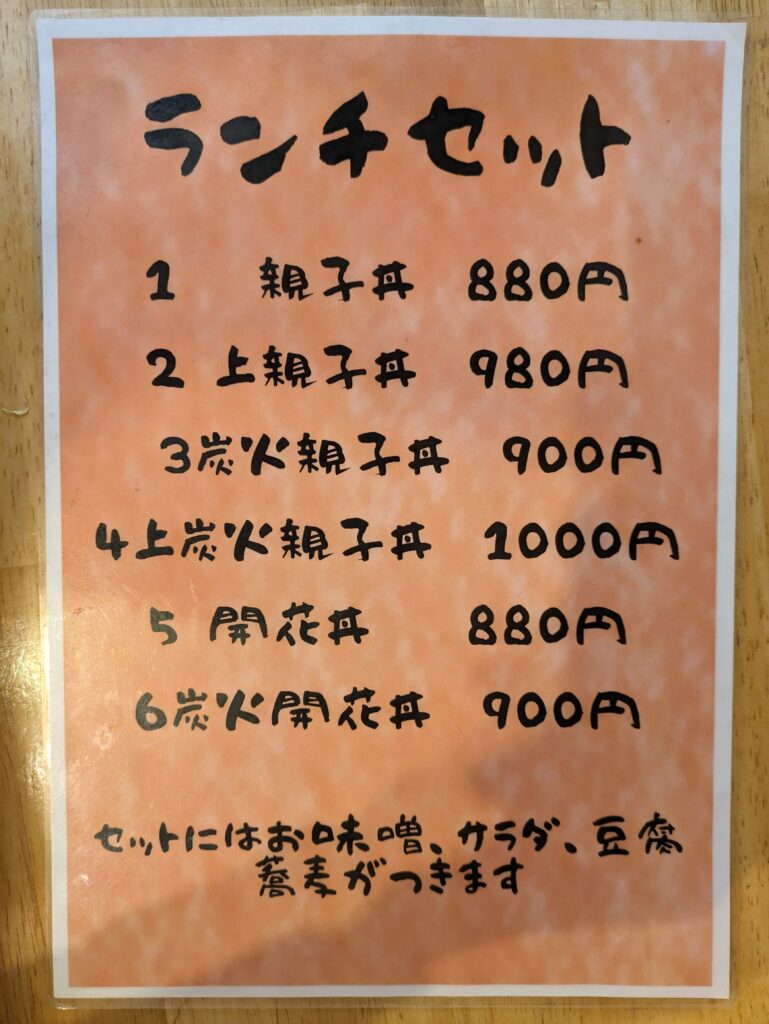 ランチセット
1 親子丼 880円
2 上親子丼 980円
3炭火親子丼 900円
4上炭火親子丼 1000円
5 開花丼 880円
6炭火開花丼 900円
セットにはお味噌、サラダ、豆腐
蕎麦がつきます